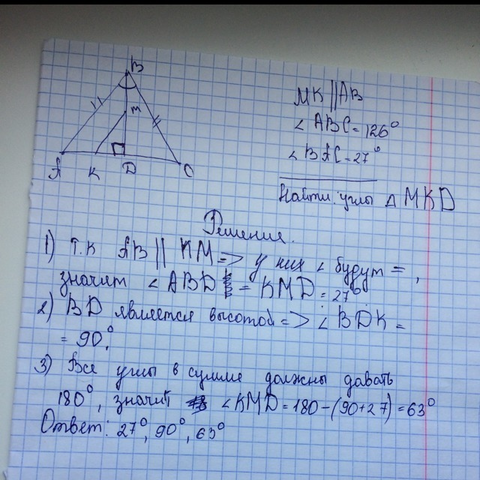 B
M
A K D C
MK || AB
∠ ABC = 126°
∠ BAC = 27°
Найти: углы Δ MKD
Решение.
1) Т.к AB || KM => у них ∠ будут = ,
значит ∠ABD = KMD = 27°
2) BD является высотой => ∠ BDK =
= 90°
3) Все углы в сумме должны давать
180°, значит ∠KMD = 180-(90+27) = 63°
Ответ: 27°, 90°, 63°